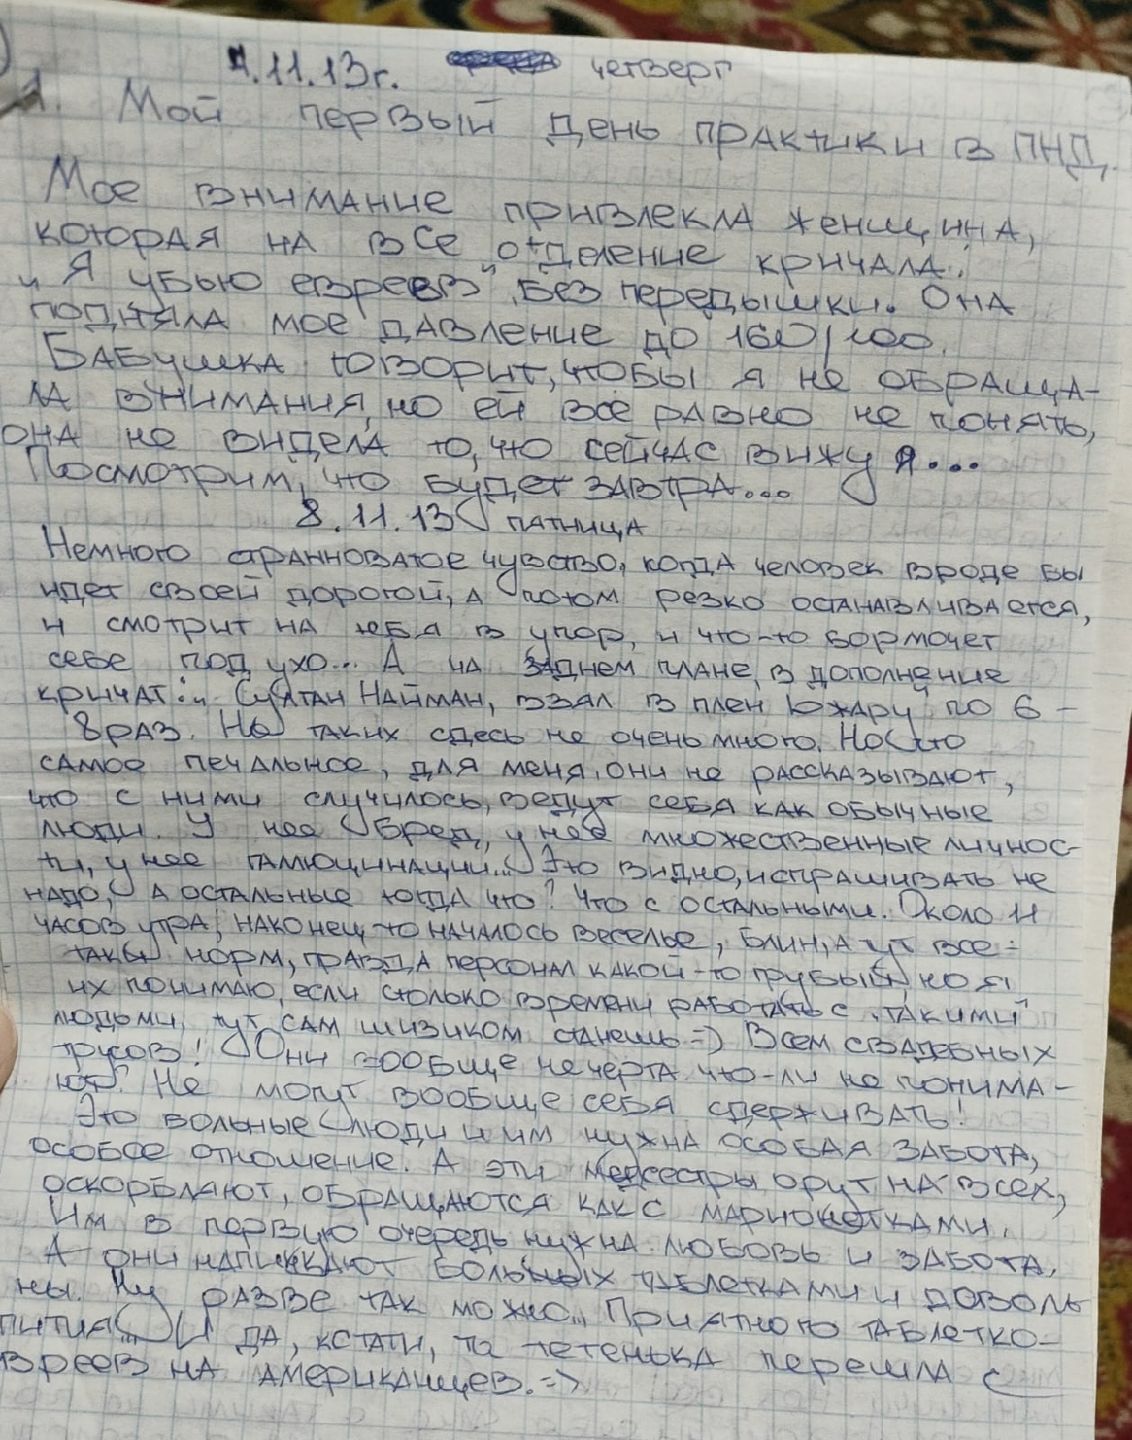 7.11.13г. четверг
1. Мой первый день практики в ПНД.
Мое внимание привлекла женщина,
которая на все отделение кричала:
"Я убью евреев" без передышки. Она
подняла мое давление до 160/100.
Бабушка говорит, чтобы я не обраща-
ла внимания, но ей все равно не понять,
она не видела то, что сейчас вижу я...
Посмотрим, что будет завтра...
8.11.13 пятница
Немного странноватое чувство, когда человек вроде бы
идет своей дорогой, а потом резко останавливается,
и смотрит на тебя в упор, и что-то бормочет
себе под ухо... А на заднем плане, в дополнение
кричат: "Султан Найман, взял в плен Южару" по 6-
8 раз. Но таких сдесь не очень много. Но что
самое печальное, для меня, они не рассказывают,
что с ними случилось, ведут себя как обычные
люди. У нее бред, у нее множественные личнос-
ти, у нее галюцинации... Это видно, и спрашивать не
надо, а остальные тогда что? Что с остальными. Около 11
часов утра, наконец-то началось веселье, блин, а тут все-
таки норм, правда персонал какой-то грубый, но я
их понимаю, если столько времени работать с "такими"
людьми, тут сам шизиком станешь =) Всем свадебных
трусов! Они вообще не черта что-ли не понима-
ют? Не могут вообще себя сдерживать!
Это больные люди и им нужна особая забота,
особое отношение. А эти медсестры орут на всех,
оскорбляют, обращаются как с марионетками.
Им в первую очередь нужна любовь и забота.
А они напичкают больных таблетками и доволь
ны. Ну разве так можно... Приятного таблетко-
пития... И да, кстати, та тетенька перешла с
евреев на американцев. =>